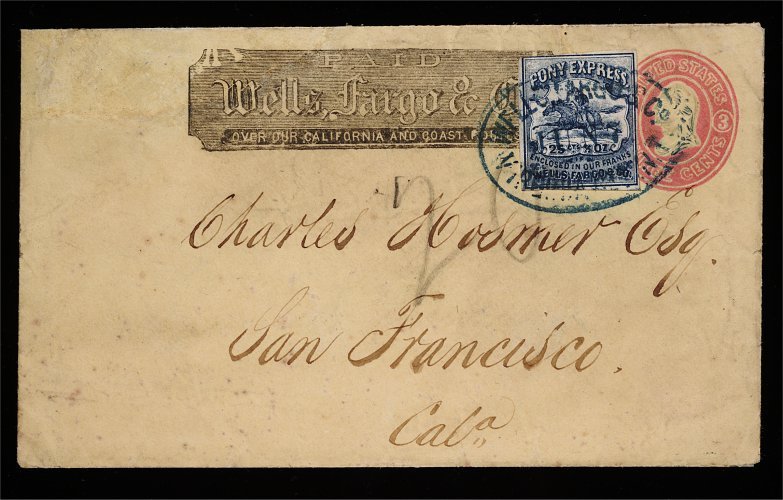 PAID
Wells, Fargo &
OVER OUR CALIFORNIA AND COAST
PONY EXPRESS
25 Cts ½ OZ
ENCLOSED IN OUR FRANKS
WELLS FARGO & CO.
WELLS FARGO & Co
UNITED STATES
3
CENTS
20
Charles Hosmer Esq.
San Francisco.
Cala